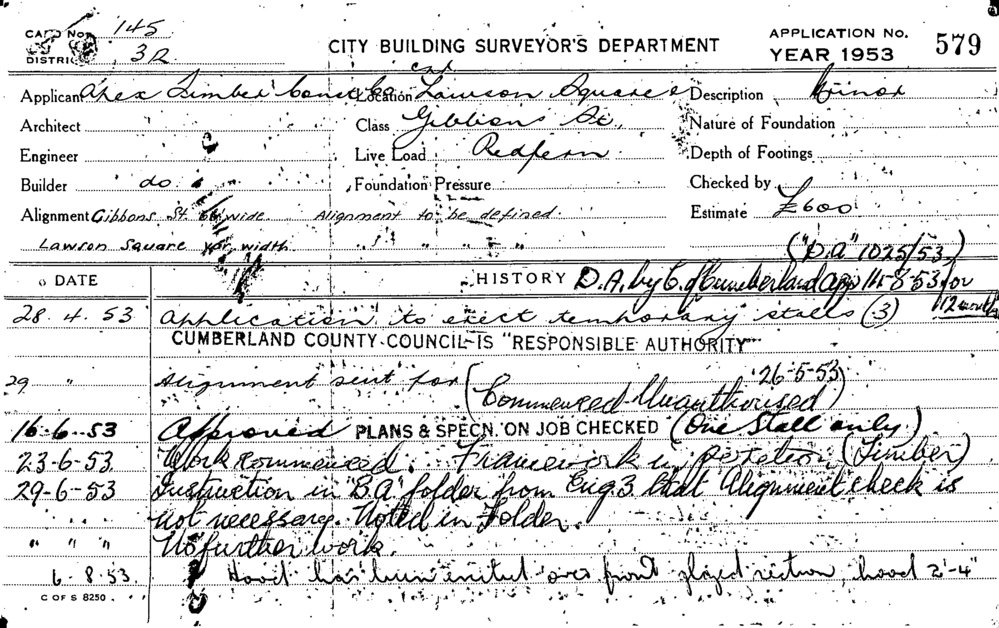 CARD No. 145
DISTRICT 3R
CITY BUILDING SURVEYOR'S DEPARTMENT
APPLICATION NO.
YEAR 1953
579
Applicant Apex Timber Const Co Location Cnr Lawson Square & Description Minor
Architect Class Gibbons St, Nature of Foundation
Engineer Live Load Redfern Depth of Footings
Builder do Foundation Pressure Checked by
Alignment Gibbons St. 66' wide. Alignment to be defined. Estimate £600
Lawson Square var width. " " " " ("D.A" 1025/53)
DATE HISTORY D.A. by C. of Cumberland app 11-8-53 for 12 months
28.4.53 Application to erect temporary stalls (3)
CUMBERLAND COUNTY COUNCIL IS "RESPONSIBLE AUTHORITY"
29 " Alignment sent for (26-5-53
Commenced Unauthorised)
16-6-53 Approved PLANS & SPECN. ON JOB CHECKED (One Stall only)
23-6-53 Work commenced. Framework in position (Timber)
29-6-53 Instruction in "B.A" folder from Eng 3 that Alignment check is
" " " not necessary. Noted in Folder.
" " " No further work.
6-8-53 Hood has been erected over front section, hood 2'-4"
C OF S 8250